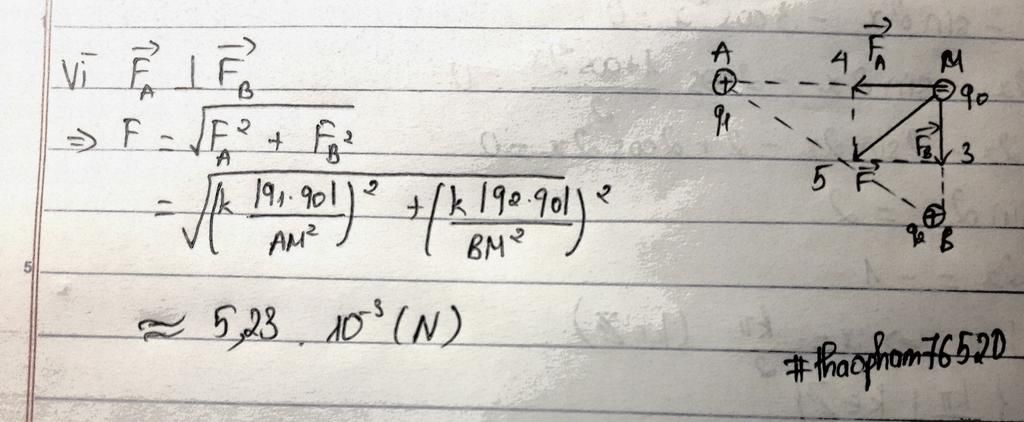 Vì F⃗_A ⊥ F⃗_B
⇒ F = √(F_A² + F_B²)
= √((k |q1.q0| / AM²)² + (k |q2.q0| / BM²)²)
≈ 5,23 . 10⁻³ (N)
A
q1
4
F⃗_A
M
q0
F⃗_B
3
5
F⃗
q2
B
5
#thaopham76520